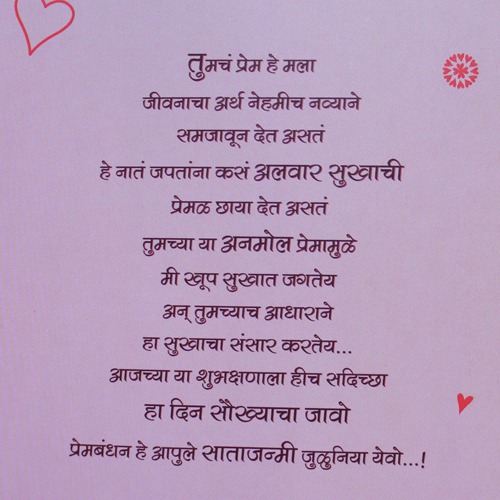 तुमचं प्रेम हे मला
जीवनाचा अर्थ नेहमीच नव्याने
समजावून देत असतं
हे नातं जपतांना कसं अलवार सुखाची
प्रेमळ छाया देत असतं
तुमच्या या अनमोल प्रेमामुळे
मी खूप सुखात जगतेय
अन् तुमच्याच आधाराने
हा सुखाचा संसार करतेय...
आजच्या या शुभक्षणाला हीच सदिच्छा
हा दिन सौख्याचा जावो
प्रेमबंधन हे आपुले साताजन्मी जुळुनिया येवो...!